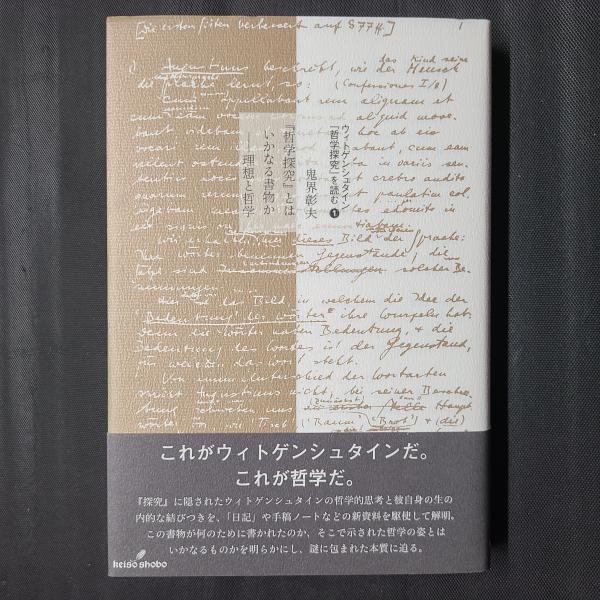 [Die ersten Seiten verbessert auf S 77 ff.]
1
Augustinus beschreibt, wie der Mensch
die Sprache lernt, so: (Confessiones I/8)
cum appellabant rem aliquam et
aliquid move
hoc ab eis
vocari rem
abant, cum eam
in variis sen
et crebro audita
paulatim col
edomito in
dieses Bild der Sprache:
Die Wörter benennen Gegenstände, die
Sätze sind solcher Be-
nennungen.
Hier ist das Bild, in welchem die Idee der
"Bedeutung der Wörter" ihre Wurzeln hat
Bedeutung, & die
Bedeutung des Wortes ist der Gegenstand,
das Wort steht.
Von einem Unterschied der Wortarten
spricht Augustinus nicht, bei seiner Beschrei-
bung schweben uns Haupt
('Baum', 'Brot') & (die)
ウィトゲンシュタイン
『哲学探究』を読む❶
鬼界彰夫
『哲学探究』とは
いかなる書物か
――理想と哲学
これがウィトゲンシュタインだ。
これが哲学だ。
『探究』に隠されたウィトゲンシュタインの哲学的思考と彼自身の生の
内的な結びつきを、「日記」や手稿ノートなどの新資料を駆使して解明。
この書物が何のために書かれたのか、そこで示された哲学の姿とは
いかなるものかを明らかにし、謎に包まれた本質に迫る。
keiso shobo